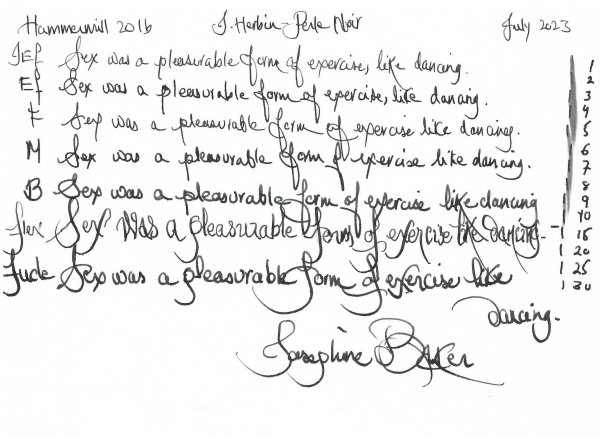 Hammermill 20lb J. Herbin - Perle Noir July 2023
IEF Sex was a pleasurable form of exercise, like dancing.
EF Sex was a pleasurable form of exercise, like dancing.
F Sex was a pleasurable form of exercise like dancing.
M Sex was a pleasurable form of exercise like dancing.
B Sex was a pleasurable form of exercise like dancing
flex Sex was a pleasurable form of exercise like dancing.
Fude Sex was a pleasurable form of exercise like
dancing.
Josephine Baker
1
2
3
4
5
6
7
8
9
10
15
20
25
30